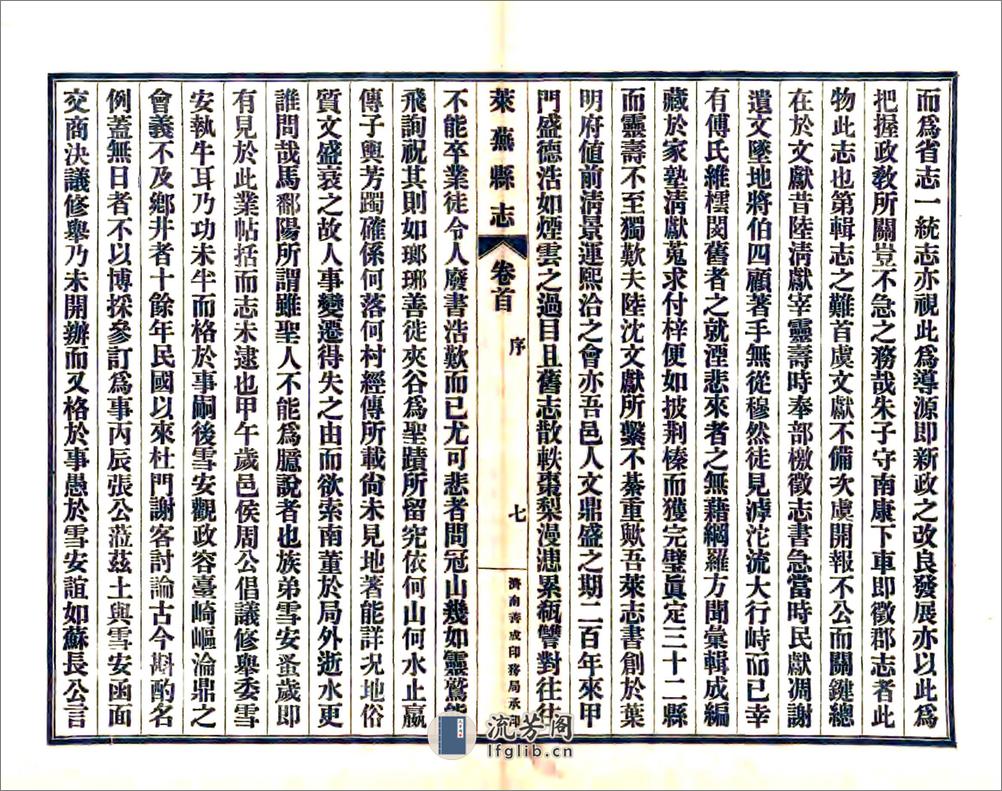 而爲省志一統志亦視此爲導源即新政之改良發展亦以此爲
把握政敎所關豈不急之務哉朱子守南康下車即徵郡志者此
物此志也第輯志之難首虞文獻不備次虞開報不公而關鍵總
在於文獻昔陸淸獻宰靈壽時奉部檄徵志書急當時民獻凋謝
遺文墜地將伯四顧著手無從穆然徒見滹沱流大行峙而已幸
有傅氏維橒閔舊者之就湮悲來者之無藉網羅方聞彙輯成編
藏於家塾淸獻蒐求付梓便如披荆榛而獲完璧眞定三十二縣
而靈壽不至獨歎夫陸沈文獻所繫不綦重歟吾萊志書創於葉
明府値前淸景運熙洽之會亦吾邑人文鼎盛之期二百年來甲
門盛德浩如煙雲之過目且舊志散軼棗梨漫漶累瓻讐對往往
萊蕪縣志 卷首 序 七 濟南善成印務局承印
不能卒業徒令人廢書浩歎而已尤可悲者問冠山幾如靈鷲能
飛詢祝其則如瑯琊善徙夾谷爲聖蹟所留究依何山何水止嬴
傳子輿芳躅確係何落何村經傳所載尙未見地著能詳況地俗
質文盛衰之故人事變遷得失之由而欲索南董於局外逝水更
誰問哉馬鄱陽所謂雖聖人不能爲臆說者也族弟雪安蚤歲即
有見於此業帖括而志未逮也甲午歲邑侯周公倡議修舉委雪
安執牛耳乃功未半而格於事嗣後雪安觀政容臺崎嶇淪鼎之
會義不及鄕井者十餘年民國以來杜門謝客討論古今斟酌名
例蓋無日者不以博採參訂爲事丙辰張公蒞茲土與雪安函面
交商決議修舉乃未開辦而又格於事愚於雪安誼如蘇長公言
流芳阁
lfglib.cn